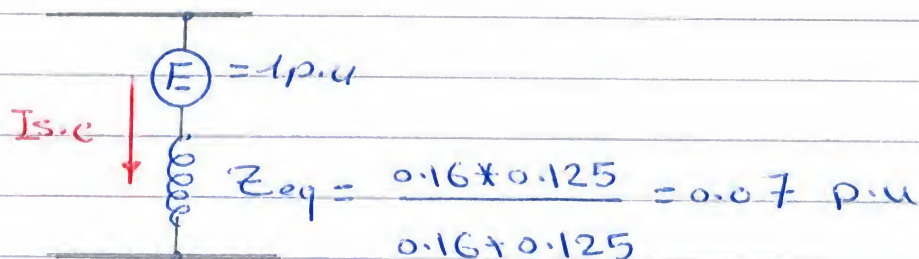 E = 1 p.u
Is.c
Zeq = 0.16*0.125 / 0.16+0.125 = 0.07 p.u